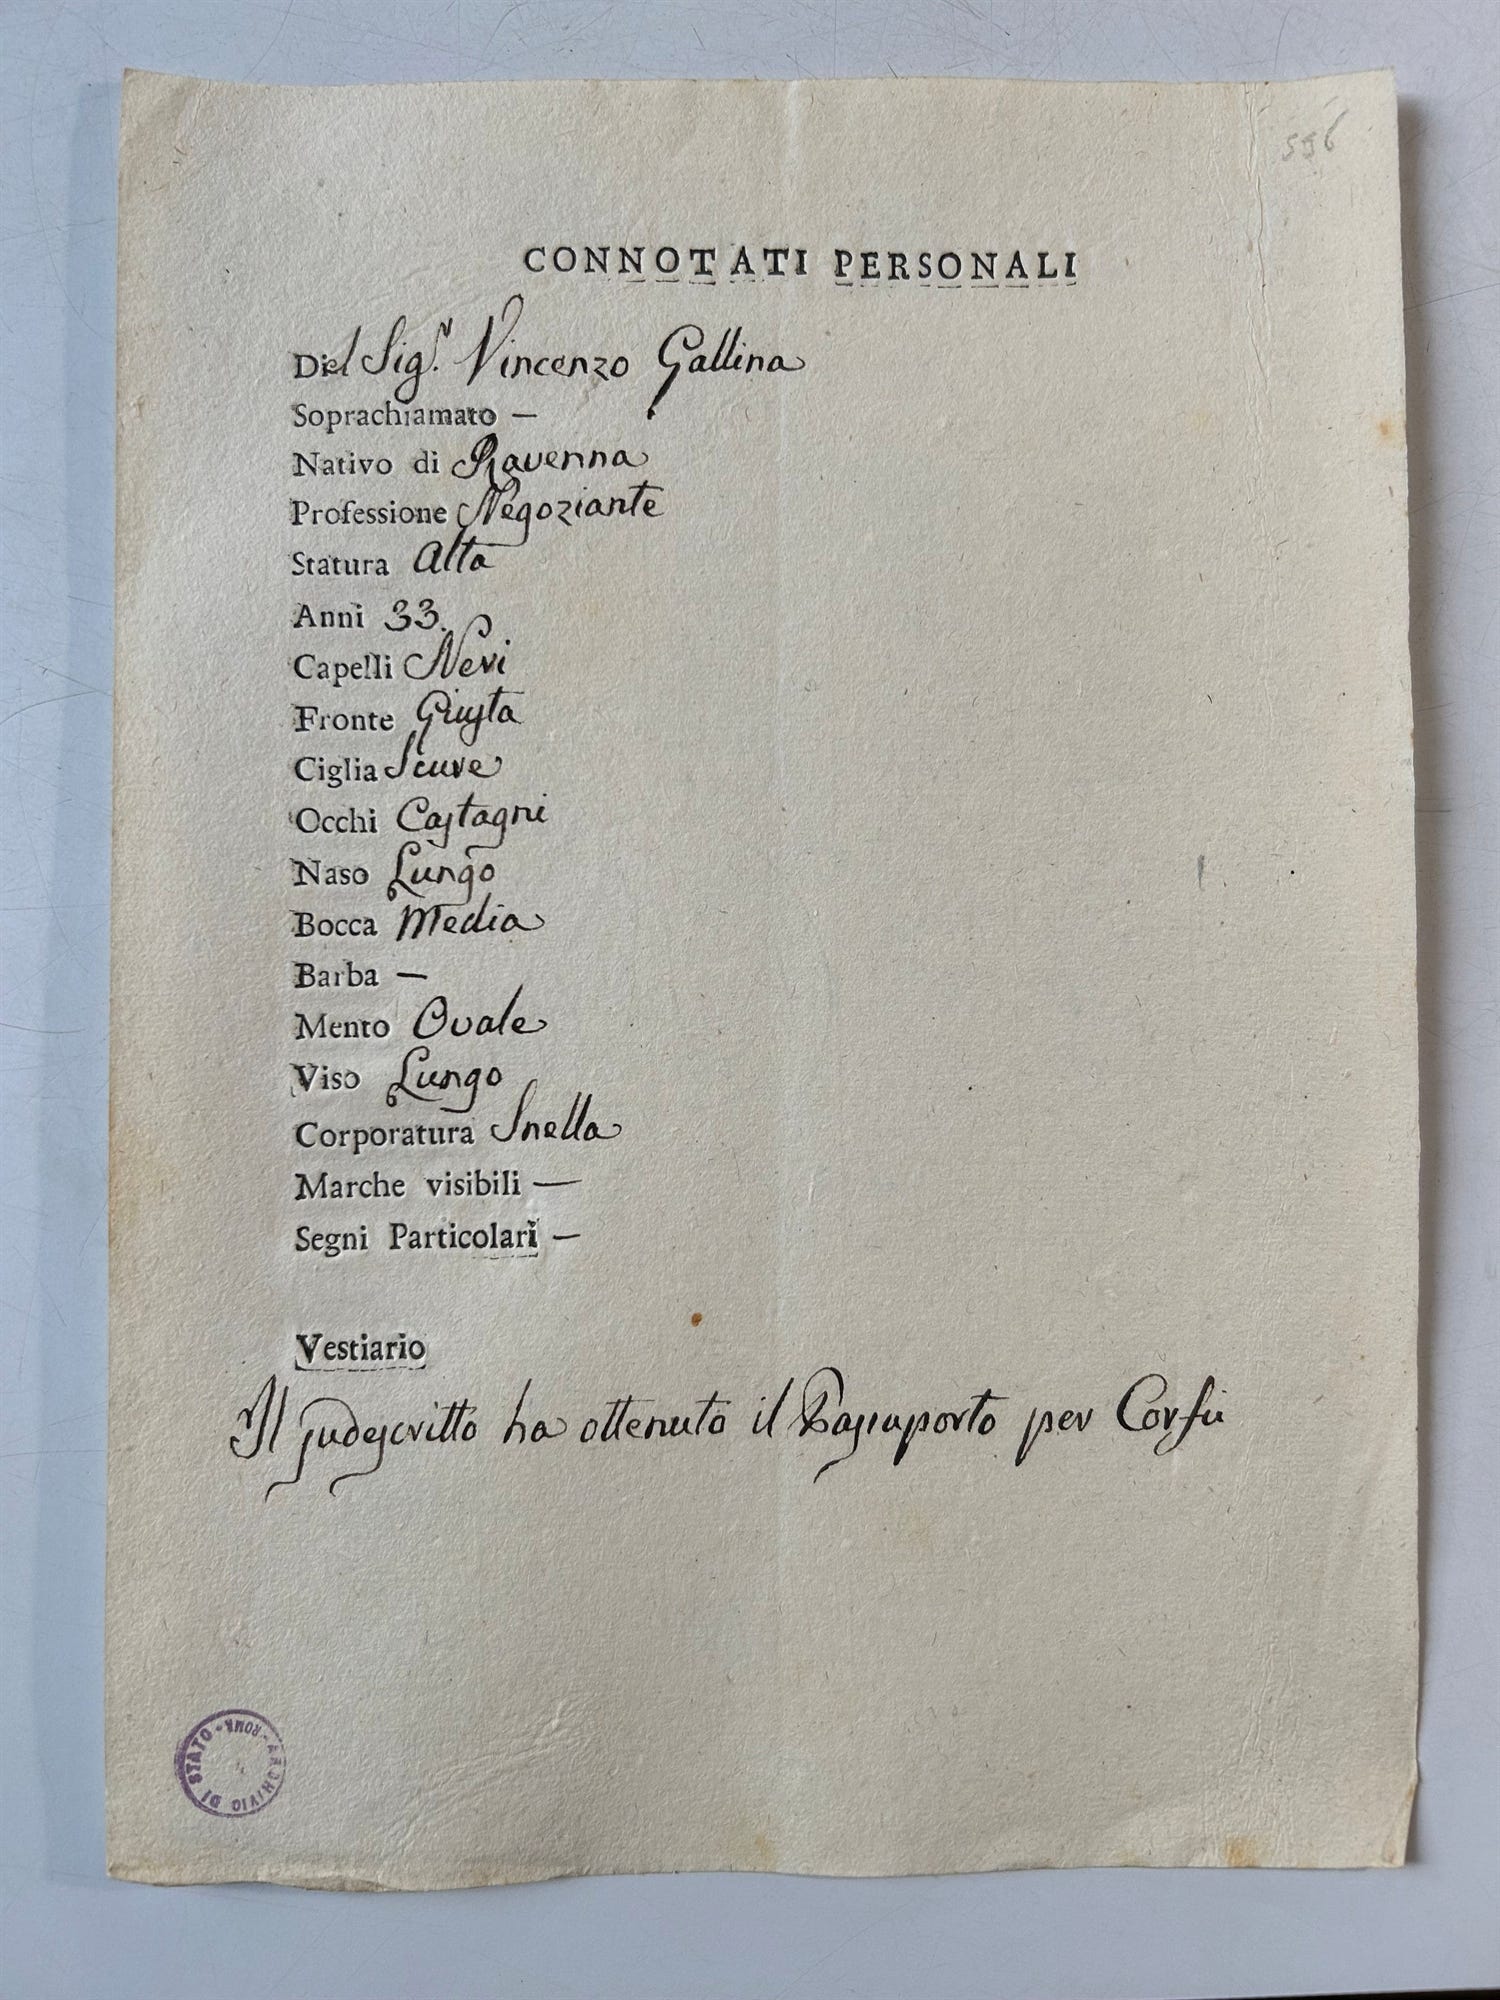 556
CONNOTATI PERSONALI
Del Sig.r Vincenzo Gallina
Soprachiamato —
Nativo di Ravenna
Professione Negoziante
Statura Alta
Anni 33.
Capelli Neri
Fronte Giusta
Ciglia Scure
Occhi Castagni
Naso Lungo
Bocca Media
Barba —
Mento Ovale
Viso Lungo
Corporatura Snella
Marche visibili —
Segni Particolari —
Vestiario
Il sudescritto ha ottenuto il Passaporto per Corfù
ARCHIVIO DI STATO - ROMA -